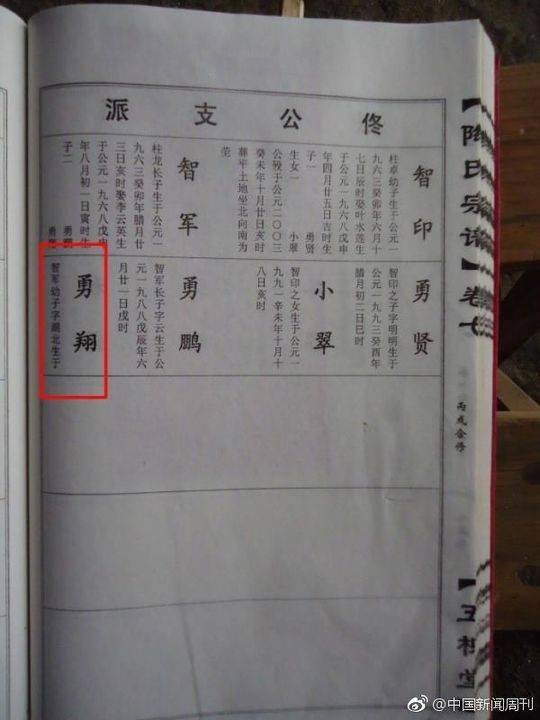 【陶氏宗谱】卷七
丙戌合修
【五柳堂
公支派
智印
柱卓幼子生于公元一
九六三癸卯年六月十
七日辰时娶叶水莲生
于公元一九六八戊申
年四月廿五日吉时生
子一 勇贤
生女一 小翠
公殁于公元二〇〇三
癸未年十月廿日亥时
葬平土地坐北向南为
茔
智军
柱龙长子生于公元一
九六三癸卯年腊月廿
三日亥时娶李云英生
于公元一九六八戊申
年八月初一日寅时生
子二 勇鹏
勇贤
智印之子字明明生于
公元一九九三癸酉年
腊月初二日巳时
小翠
智印之女生于公元一
九九一辛未年十月十
八日亥时
勇鹏
智军长子字云生于公
元一九八八戊辰年六
月廿一日戌时
勇翔
智军幼子字湖北生于
@中国新闻周刊